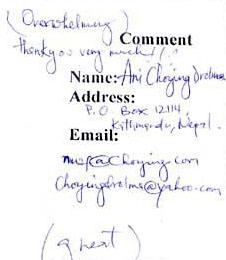 (Overwhelming)
Comment
thank you very much!!
Name: Ani Choying Drolma
Address:
P.O. Box 12114,
Kathmandu, Nepal.
Email:
@choying.com
Choyingdrolma@yahoo.com
(great)